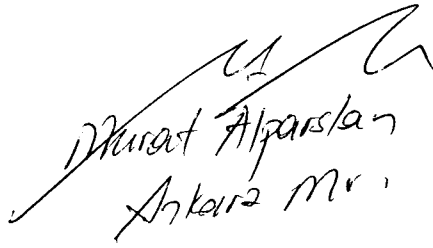 Murat Alparslan
Ankara Mv.